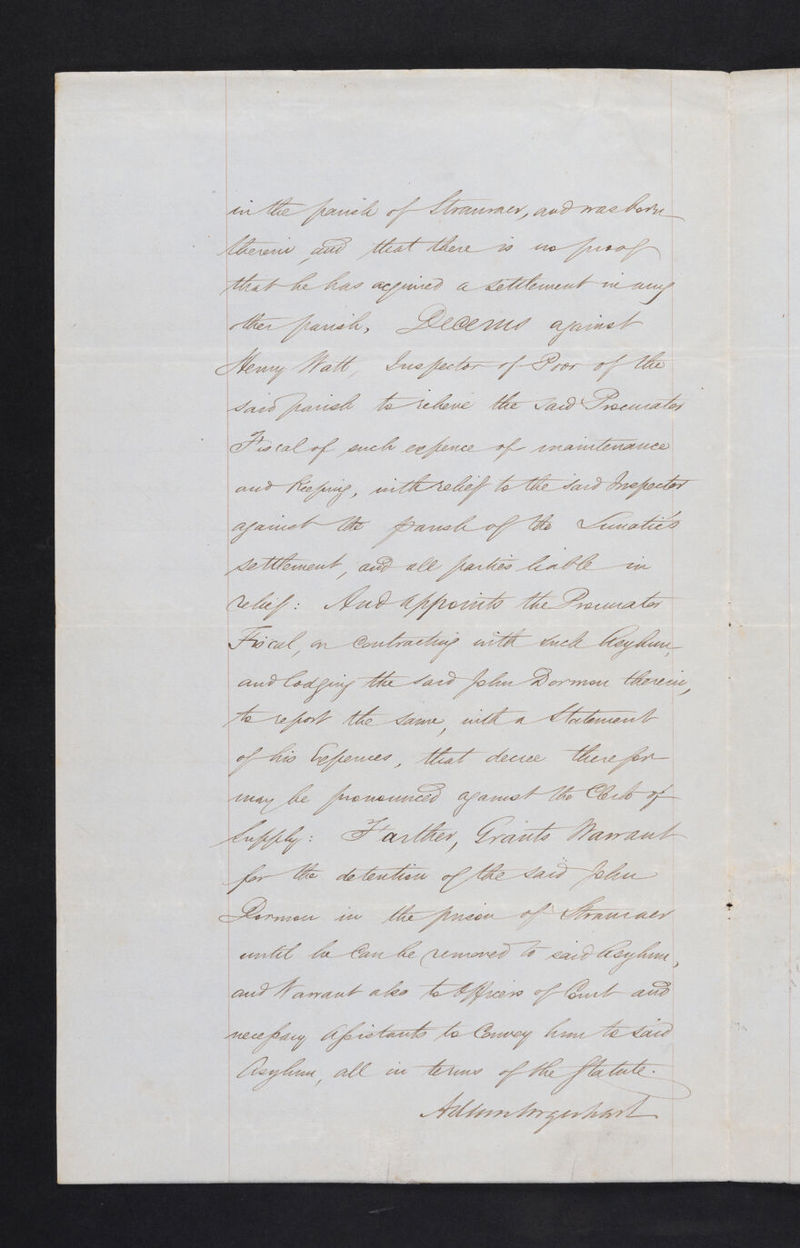 in the parish of Stranraer, and was born
therein and that there is no proof
that he has acquired a settlement in any
other parish, Decerns against
Henry Watt, Inspector of Poor of the
said parish to relieve the said Procurator
Fiscal of such expence of maintenance
and keeping, with relief to the said Inspector
against the parish of the Lunatic's
settlement, and all parties liable in
relief: And Appoints the Procurator
Fiscal, on Contracting with such Asylum,
and lodging the said John Dorman therein,
to report the same, with a Statement
of his Expences, that decree therefor
may be pronounced against the Clerk of
Supply: Farther, Grants Warrant
for the detention of the said John
Dorman in the prison of Stranraer
until he can be removed to said Asylum,
and Warrant also to Officers of Court and
necessary Assistants to Convey him to said
Asylum, all in terms of the Statute.
Urquhart